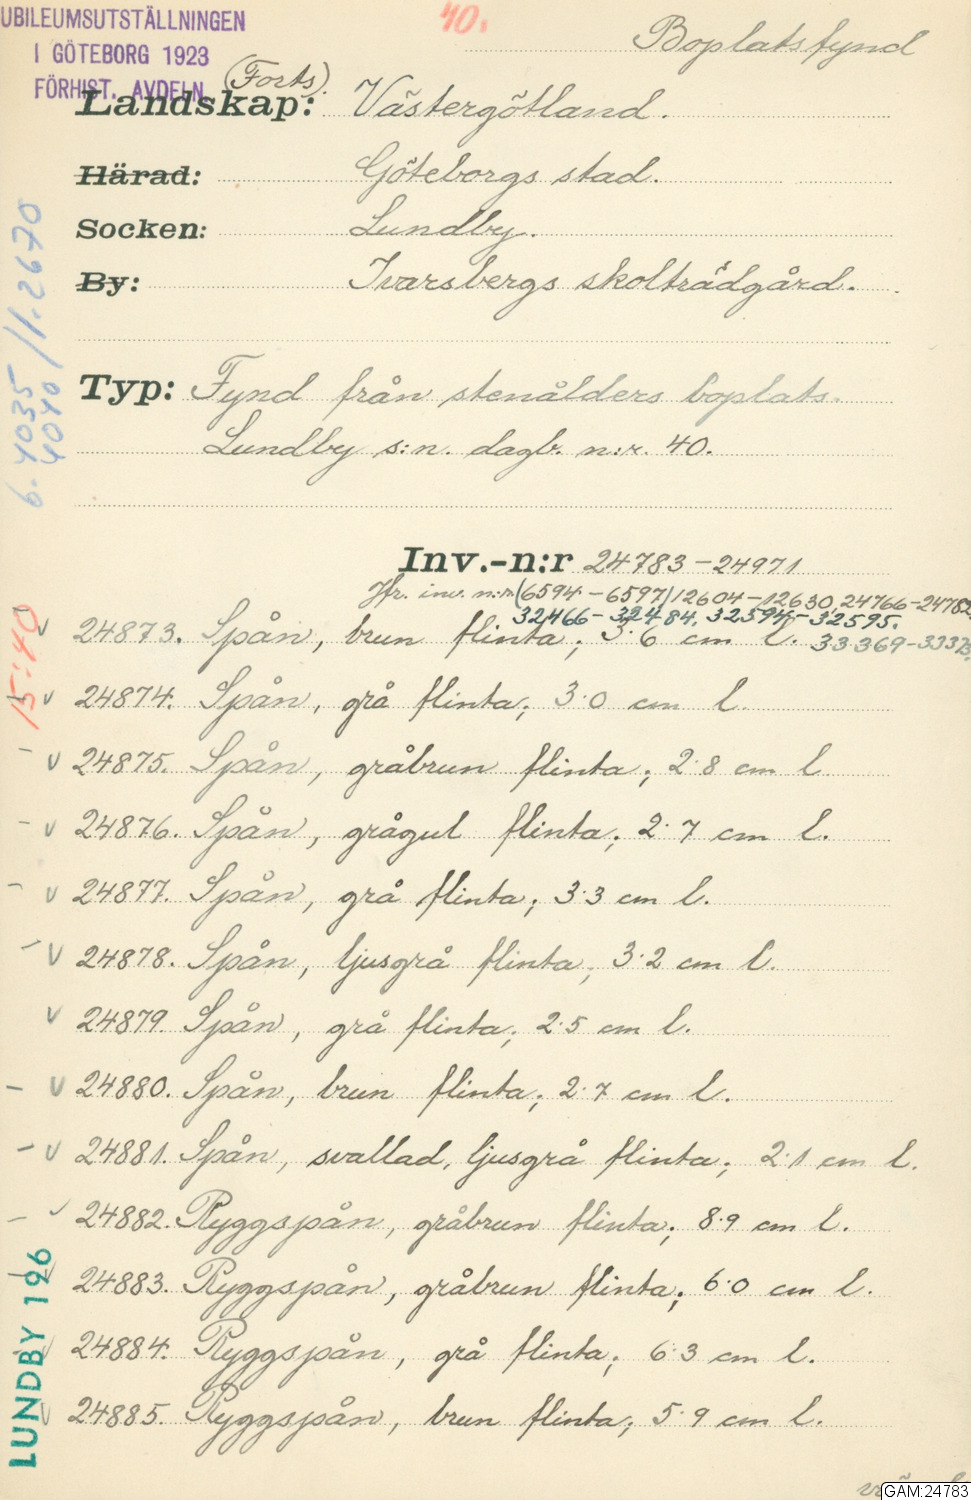 JUBILEUMSUTSTÄLLNINGEN
I GÖTEBORG 1923
FÖRHIST. AVDELN.
40.
Boplatsfynd
(Forts).
Landskap: Västergötland.
Härad: Göteborgs stad.
Socken: Lundby.
By: Ivarsbergs skolträdgård.
Typ: Fynd från stenålders boplats.
Lundby s:n. dagb. n:r. 40.
6. 4035 / 1.2670
4040
Inv.-n:r 24783-24971
Jfr. inv. n:r (6594-6597) 12604-12630, 24766-24782,
32466-32484, 32594-32595.
33369-33373,
15:40
24873. Spån, brun flinta; 3·6 cm l.
24874. Spån, grå flinta; 3·0 cm l.
24875. Spån, gråbrun flinta; 2·8 cm l.
24876. Spån, grågul flinta; 2·7 cm l.
24877. Spån, grå flinta; 3·3 cm l.
24878. Spån, ljusgrå flinta; 3·2 cm l.
24879. Spån, grå flinta; 2·5 cm l.
24880. Spån, brun flinta; 2·7 cm l.
24881. Spån, svallad, ljusgrå flinta; 2·1 cm l.
24882. Ryggspån, gråbrun flinta; 8·9 cm l.
24883. Ryggspån, gråbrun flinta; 6·0 cm l.
24884. Ryggspån, grå flinta; 6·3 cm l.
24885. Ryggspån, brun flinta; 5·9 cm l.
LUNDBY 196
GAM:24783